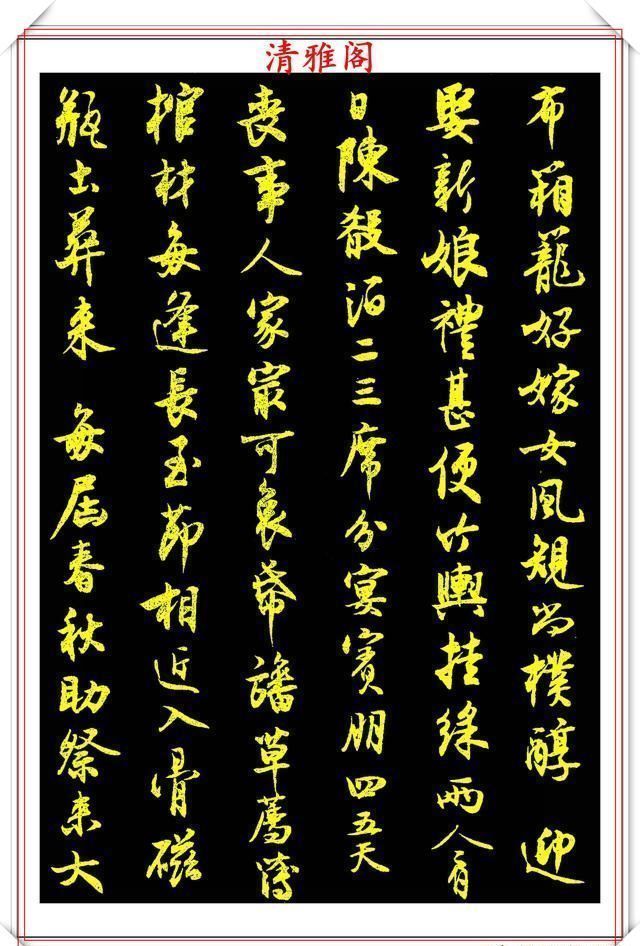 清雅阁
布箱籠好嫁女風規尚樸醇 迎
娶新娘禮甚便竹輿挂綵兩人肩
日陳殽酒二三席分宴賓朋四五天
喪事人家寂可哀幕旛草薦
棺材每逢長至節相近入骨磁
瓶出葬來 每屆春秋助祭來大